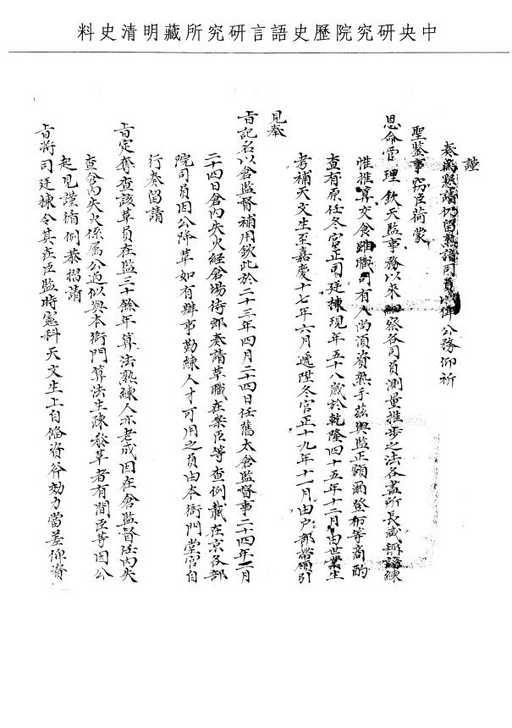 中央研究院歷史語言研究所藏明清史料
謹
奏為懇請仍留熟諳司員以俾公務仰祈
聖鑒事竊臣荷蒙
恩命管理欽天監事務以來細察各司員測量推步之法各盡所長咸稱諳練
惟推算交食雖職司有人尚須資熟手茲與監正額爾登布等商酌
查有原任冬官正司廷棟現年五十八歲於乾隆四十五年十二月由世業生
考補天文生至嘉慶十七年六月遞陞冬官正十九年十二月由戶部帶領引
見奉
旨記名以倉監督補用欽此於二十三年四月二十四日任舊太倉監督事二十四年二月
二十四日倉內失火經倉場侍郎奏請革職在案臣等查例載在京各部
院司員因公降革如有辦事勤練人才可用之員由本衙門堂官自
行奏留請
旨定奪查該革員在監三十餘年算法熟練人亦老成因在倉監督任內失
查倉內失火係屬公過似與本衙門算法生疎發革者有間臣等因公
起見謹循例恭摺請
旨將司廷棟令其在臣監時憲科天文生上自備資斧効力當差仰資